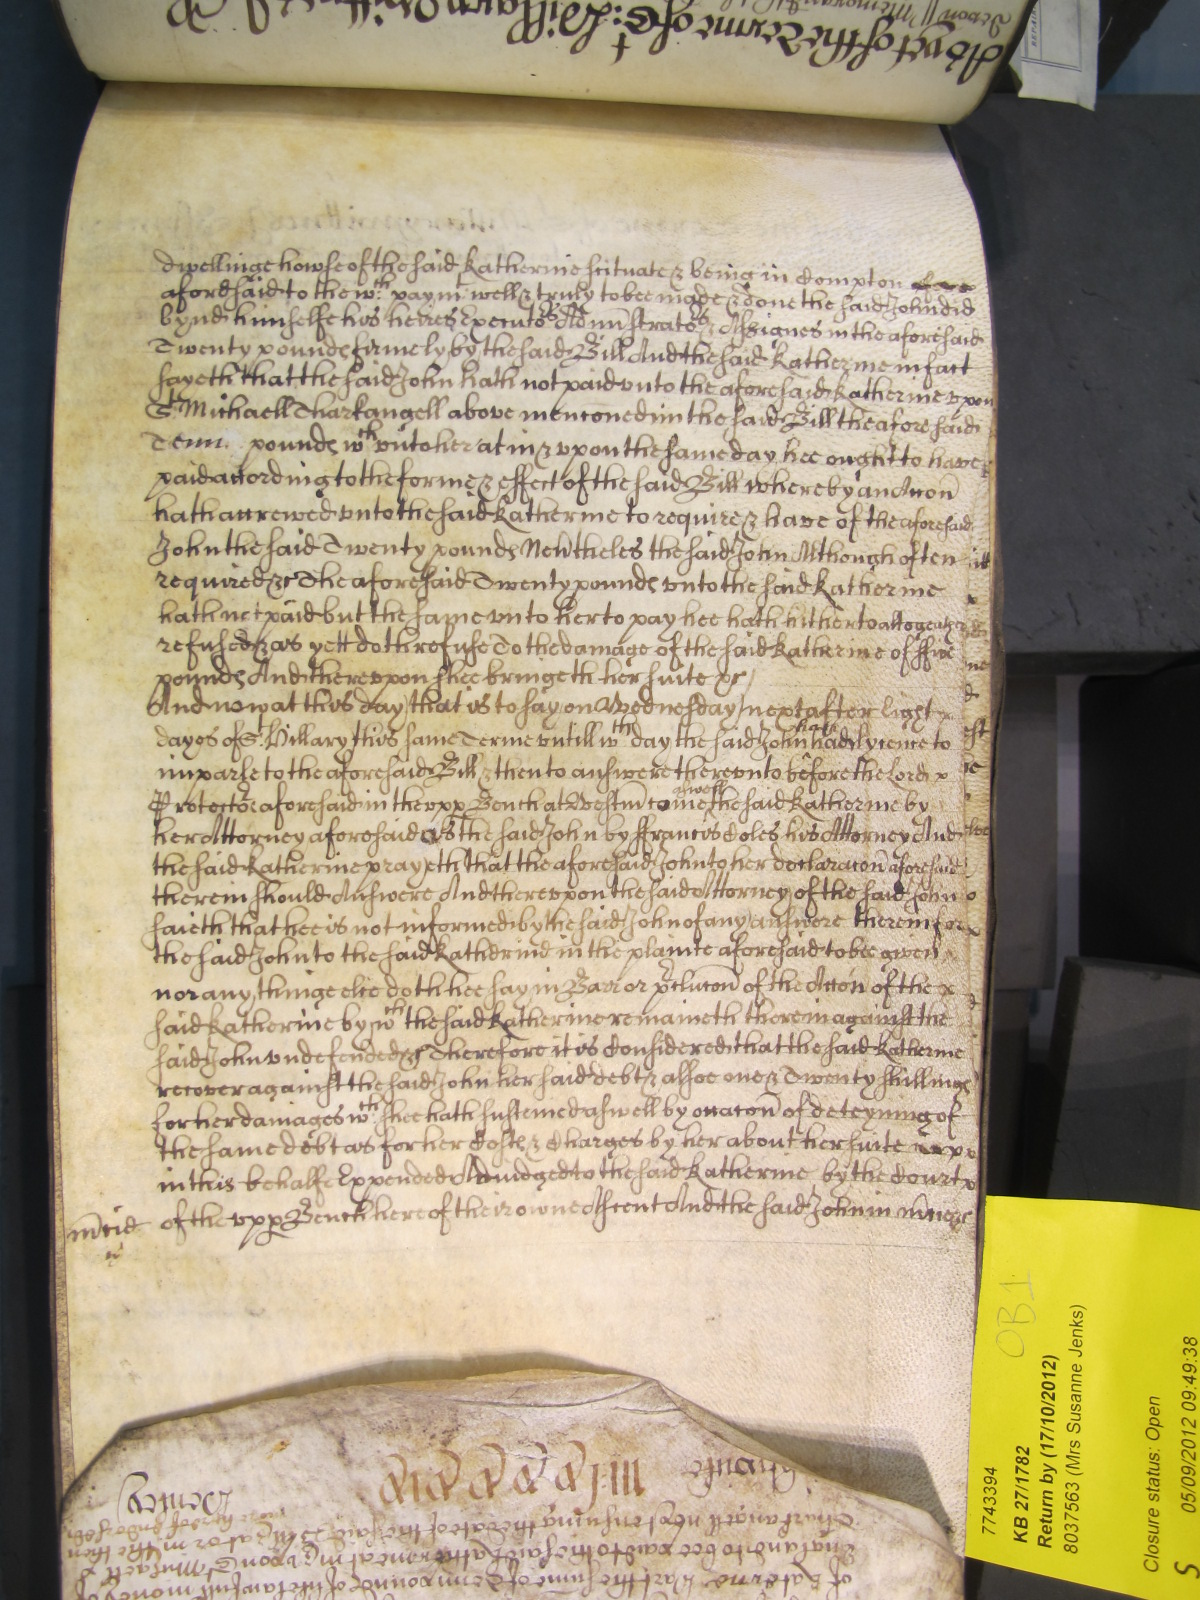 dwellinge howse of the said Katherine scituate & being in Compton
aforesaid to the wch. paymt. well & truly to bee made & done the said John did
bynde himselfe his heires Executors Administrators & Assignes in the aforesaid
Twenty pounds firmely by the said Bill And the said Katherine in fact
sayeth that the said John hath not paid vnto the aforesaid Katherine vpon
St. Michaell Tharkangell above menconed in the said Bill the aforesaid
Tenn pounds wch vnto her at in & vpon the same day hee ought to have
paid accordinge to the forme & effect of the said Bill whereby an Accon
hath accrewed vnto the said Katherine to require & have of the aforesaid
John the said Twenty pounds Neutheles the said John Although often
required &c The aforesaid Twenty pounds vnto the said Katherine
hath not paid but the same vnto her to pay hee hath hitherto altogeather
refused & as yett doth refuse To the damage of the said Katherine of ffive
pounds And therevpon shee bringeth her suite &c
And now at this day that is to say on Wednesday next after eight
dayes of St. Hillary this same Terme vntill wch day the said John had lycence to
imparle to the aforesaid Bill & then to answere therevnto before the Lord
Protector aforesaid in the vpp Bench at Westm come aswell the said Katherine by
her Attorney aforesaid as the said John by ffrancis Coles his Attorney And
the said Katherine prayeth that the aforesaid John to her declaracon aforesaid
therein should Answere And therevpon the said Attorney of the said John
saieth that hee is not informed by the said John of any answere therein for
the said John to the said Katherine in the plainte aforesaid to bee given
nor any thinge else doth hee say in Barr or pclucon of the Accon of the
said Katherine by wch the said Katherine remaineth therein against the
said John vndefended &c Therefore it is Considered that the said Katherine
recover against the said John her said debt & alsoe one & Twenty shillings
for her damages wch. shee hath susteined aswell by occacon of deteyning of
the same debt as for her Costes & Charges by her about her suite
in this behalfe Expended Adiudged to the said Katherine by the Court
mcid of the vpp Bench here of their owne Assent And the said John in mcie &c
7743394
KB 27/1782
Return by (17/10/2012)
8037563 (Mrs Susanne Jenks)
Closure status: Open
05/09/2012 09:49:38
S
OB1